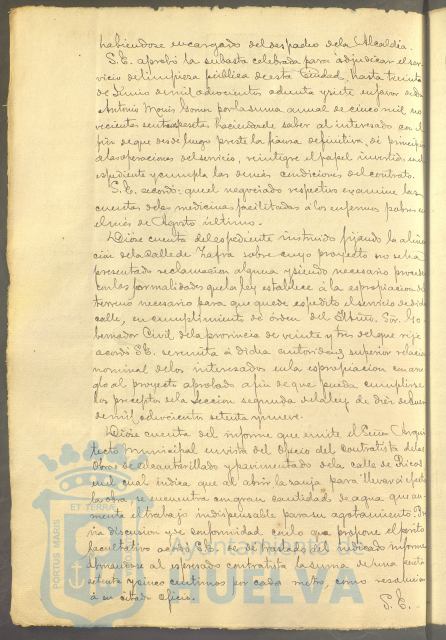 habiendose encargado del despacho de la Alcaldia.
S.E. aprobó la subasta celebrada para adjudicar el ser-
vicio de limpieza pública de esta Ciudad, hasta treinta
de Junio de mil ochocientos ochenta y siete en favor de don
Antonio por la suma anual de cinco mil no-
vecientas pesetas haciendole saber al interesado con el
fin de que desde luego preste la fianza definitiva, dé principio
a las operaciones del servicio, reintegre el papel invertido en el
expediente y cumpla las demás condiciones del contrato.
S.E. acordó: que el negociado respectivo examine las
cuentas de las medicinas facilitadas a los enfermos pobres en
el mes de Agosto último.
Dióse cuenta del expediente instruido fijando la alinea-
ción de la Calle de Zafra sobre cuyo proyecto no se ha
presentado reclamacion alguna y siendo necesario proceder
con las formalidades que la ley establece á la espropiacion del
terreno necesario para que quede espedito el servicio de dicha
calle, en cumplimiento de órden del Iltmo. Sor. Go-
bernador Civil de la provincia de veinte y tres del que rije
acordó S.E. se remita á dicha autoridad superior relacion
nominal de los interesados en la espropiacion con arre-
glo al proyecto aprobado a fin de que pueda cumplirse
los preceptos de la Seccion segunda de la ley de diez de Enero
de mil ochocientos setenta y nueve.
Dióse cuenta del informe que emite el Señor Arqui-
tecto municipal en vista del Oficio del contratista de las
Obras de alcantarillado y pavimentado de la calle de Ricos
en el cual indica que al abrir la zanja para llevar á efecto
la obra, se encuentra con gran cantidad de agua que au-
menta el trabajo indispensable para su agotamiento. Pré-
via discusion y de conformidad con lo que propone el perito
facultativo acordó S.E. se dé traslado del indicado informe
abonandose al espresado contratista la suma de una peseta
setenta y cinco centimos por cada metro, como resolucion
á su citado oficio.
S.E.
PORTUS MARIS
ET TERRAE
Ayuntamiento de
HUELVA